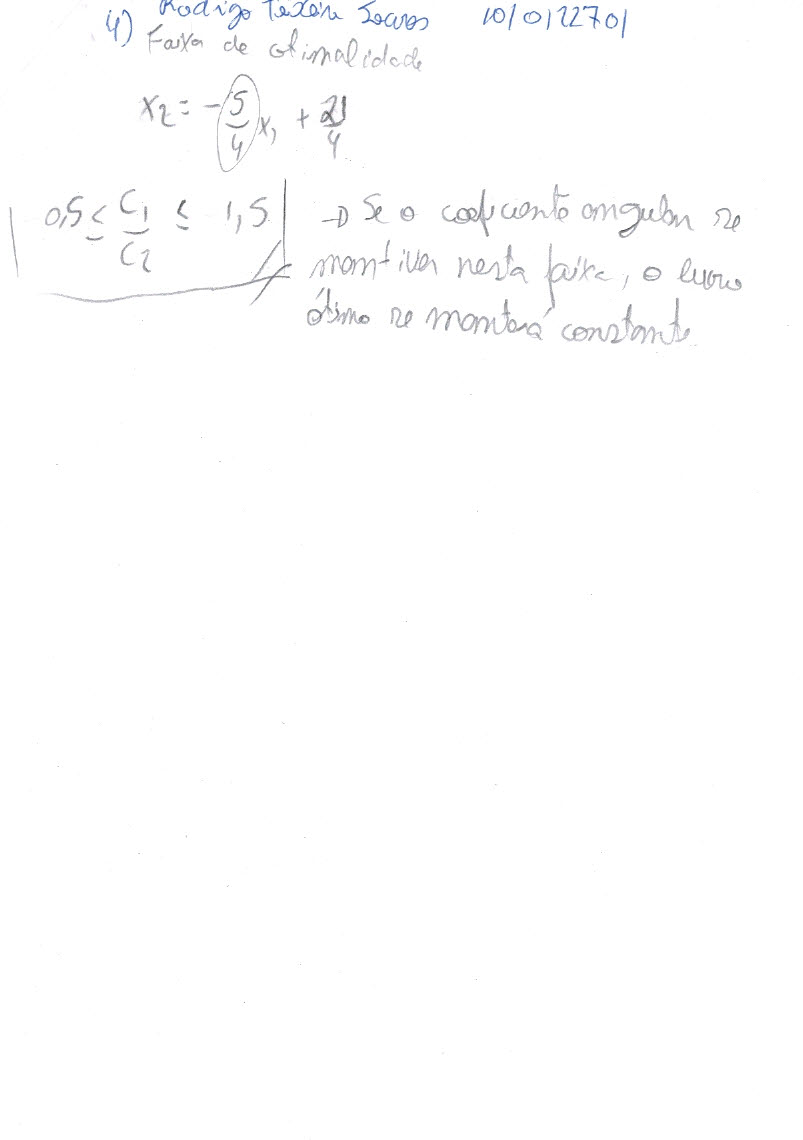 Rodrigo Teixeira Soares 10/0122701
4) Faixa de otimalidade
x2 = - 5/4 x1 + 21/4
0,5 ≤ C1/C2 ≤ 1,5 → Se o coeficiente angular se
mantiver nesta faixa, o lucro
ótimo se manterá constante